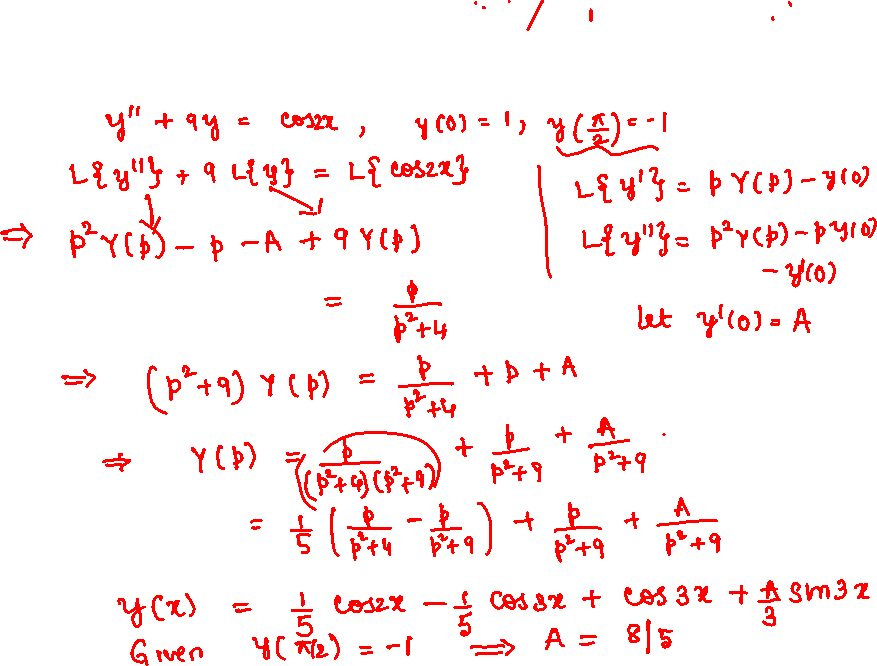 y'' + 9y = cos2x , y(0) = 1, y(π/2) = -1
L{y''} + 9 L{y} = L{cos2x}
L{y'} = p Y(p) - y(0)
⇒ p²Y(p) - p - A + 9 Y(p)
L{y''} = p²Y(p) - p y(0)
- y'(0)
= p/(p²+4)
let y'(0) = A
⇒ (p²+9) Y(p) = p/(p²+4) + p + A
⇒ Y(p) = p/((p²+4)(p²+9)) + p/(p²+9) + A/(p²+9) .
= 1/5 (p/(p²+4) - p/(p²+9)) + p/(p²+9) + A/(p²+9)
y(x) = 1/5 cos2x - 1/5 cos3x + cos3x + A/3 sin3x
Given y(π/2) = -1 ⇒ A = 8|5